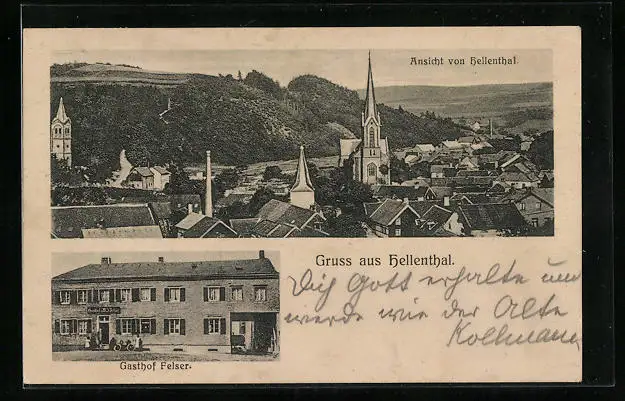 Ansicht von Hellenthal.
Gruss aus Hellenthal.
Gasthof Felser.
Dich Gott erhalte und
werde wie der Alte
Kollmann